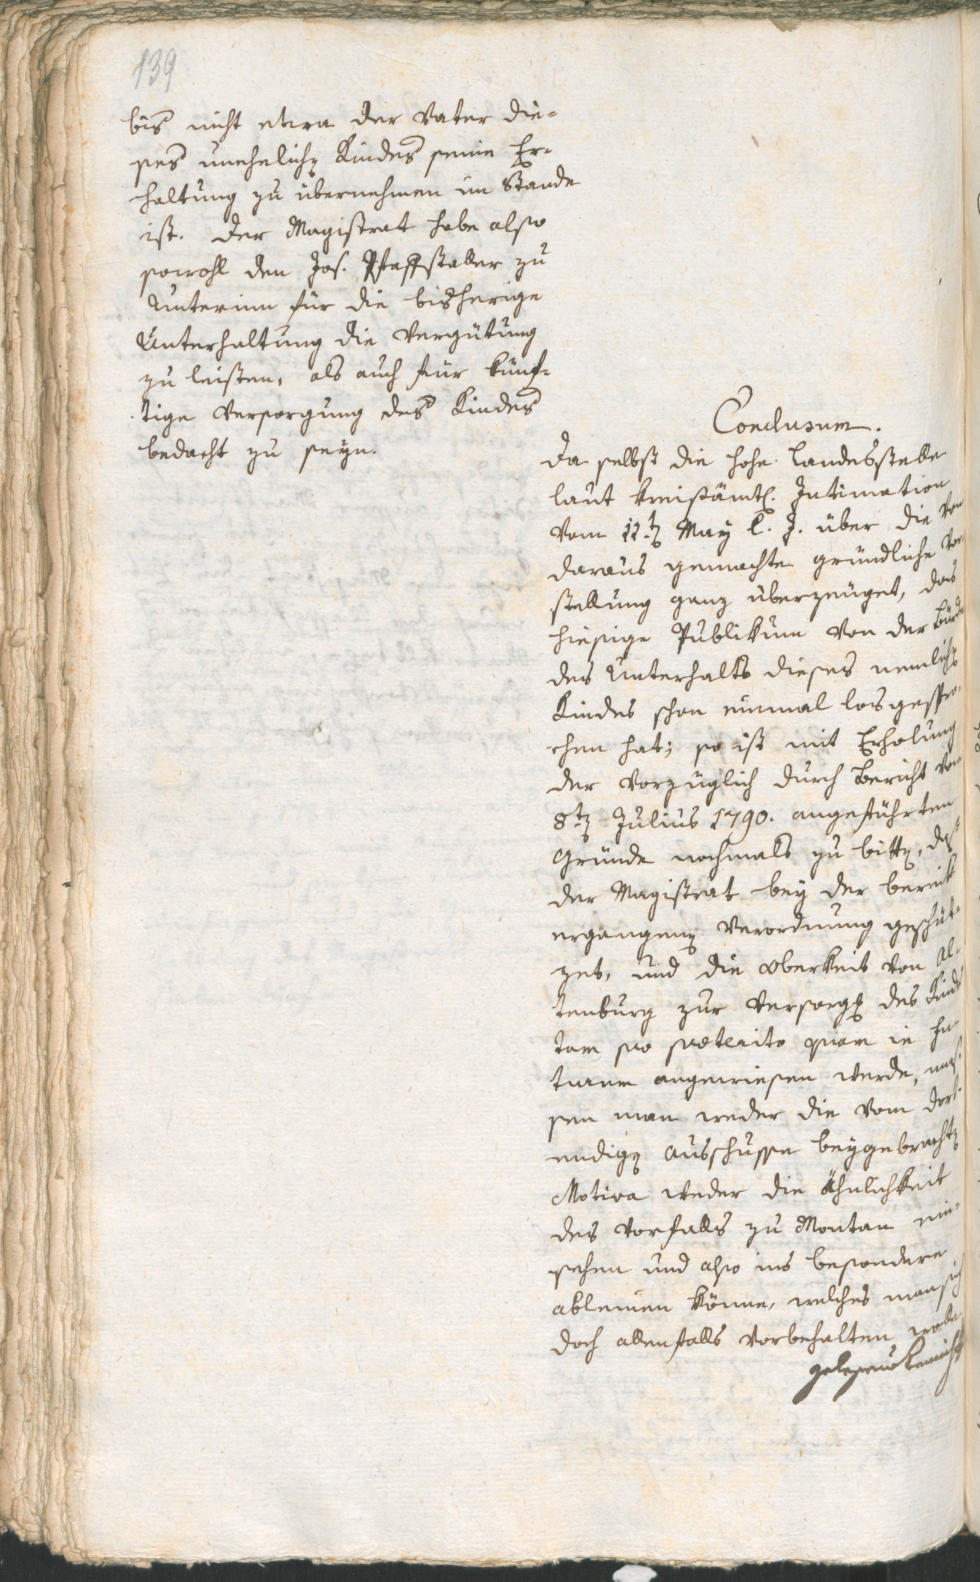 139
bis nicht etwa der Vater die-
ses unehelich Kindes seine Er-
haltung zu übernehmen im Stande
ist. Der Magistrat habe also
sowohl den Jos. Pfaffstaller zu
Unterinn für die bisherige
Unterhaltung die Vergütung
zu leisten, als auch für künf-
tige Versorgung des Kindes
bedacht zu seyn.
Conclusum.
Da selbst die hohe Landesstelle
laut kreisämtl. Intimation
vom 11t May l. J. über die von
daraus gemachte gründliche Vor
stellung ganz überzeuget, das
hiesige Publikum von der Bürde
des Unterhalts dieses nemlich
Kindes schon einmal losgespro-
chen hat; so ist mit Erholung
der vorzüglich durch Bericht vom
8t Julius 1790. angeführten
Gründe nochmals zu bitt, daß
der Magistrat bey der bereits
ergangen Verordnung geschüt-
zet, und die Oberkeit von Al-
tenburg zur Versorg des Kindes
tam pro praeterito quam in fu-
turum angewiesen werde, mas-
sen man weder die vom dort-
endig Ausschusse beygebracht
Motiva weder die Ähnlichkeit
des Vorfalls zu Montan ein-
sehen und also ins besondere
ableinen könne, welches man sich
doch allenfalls vorbehalten wolle